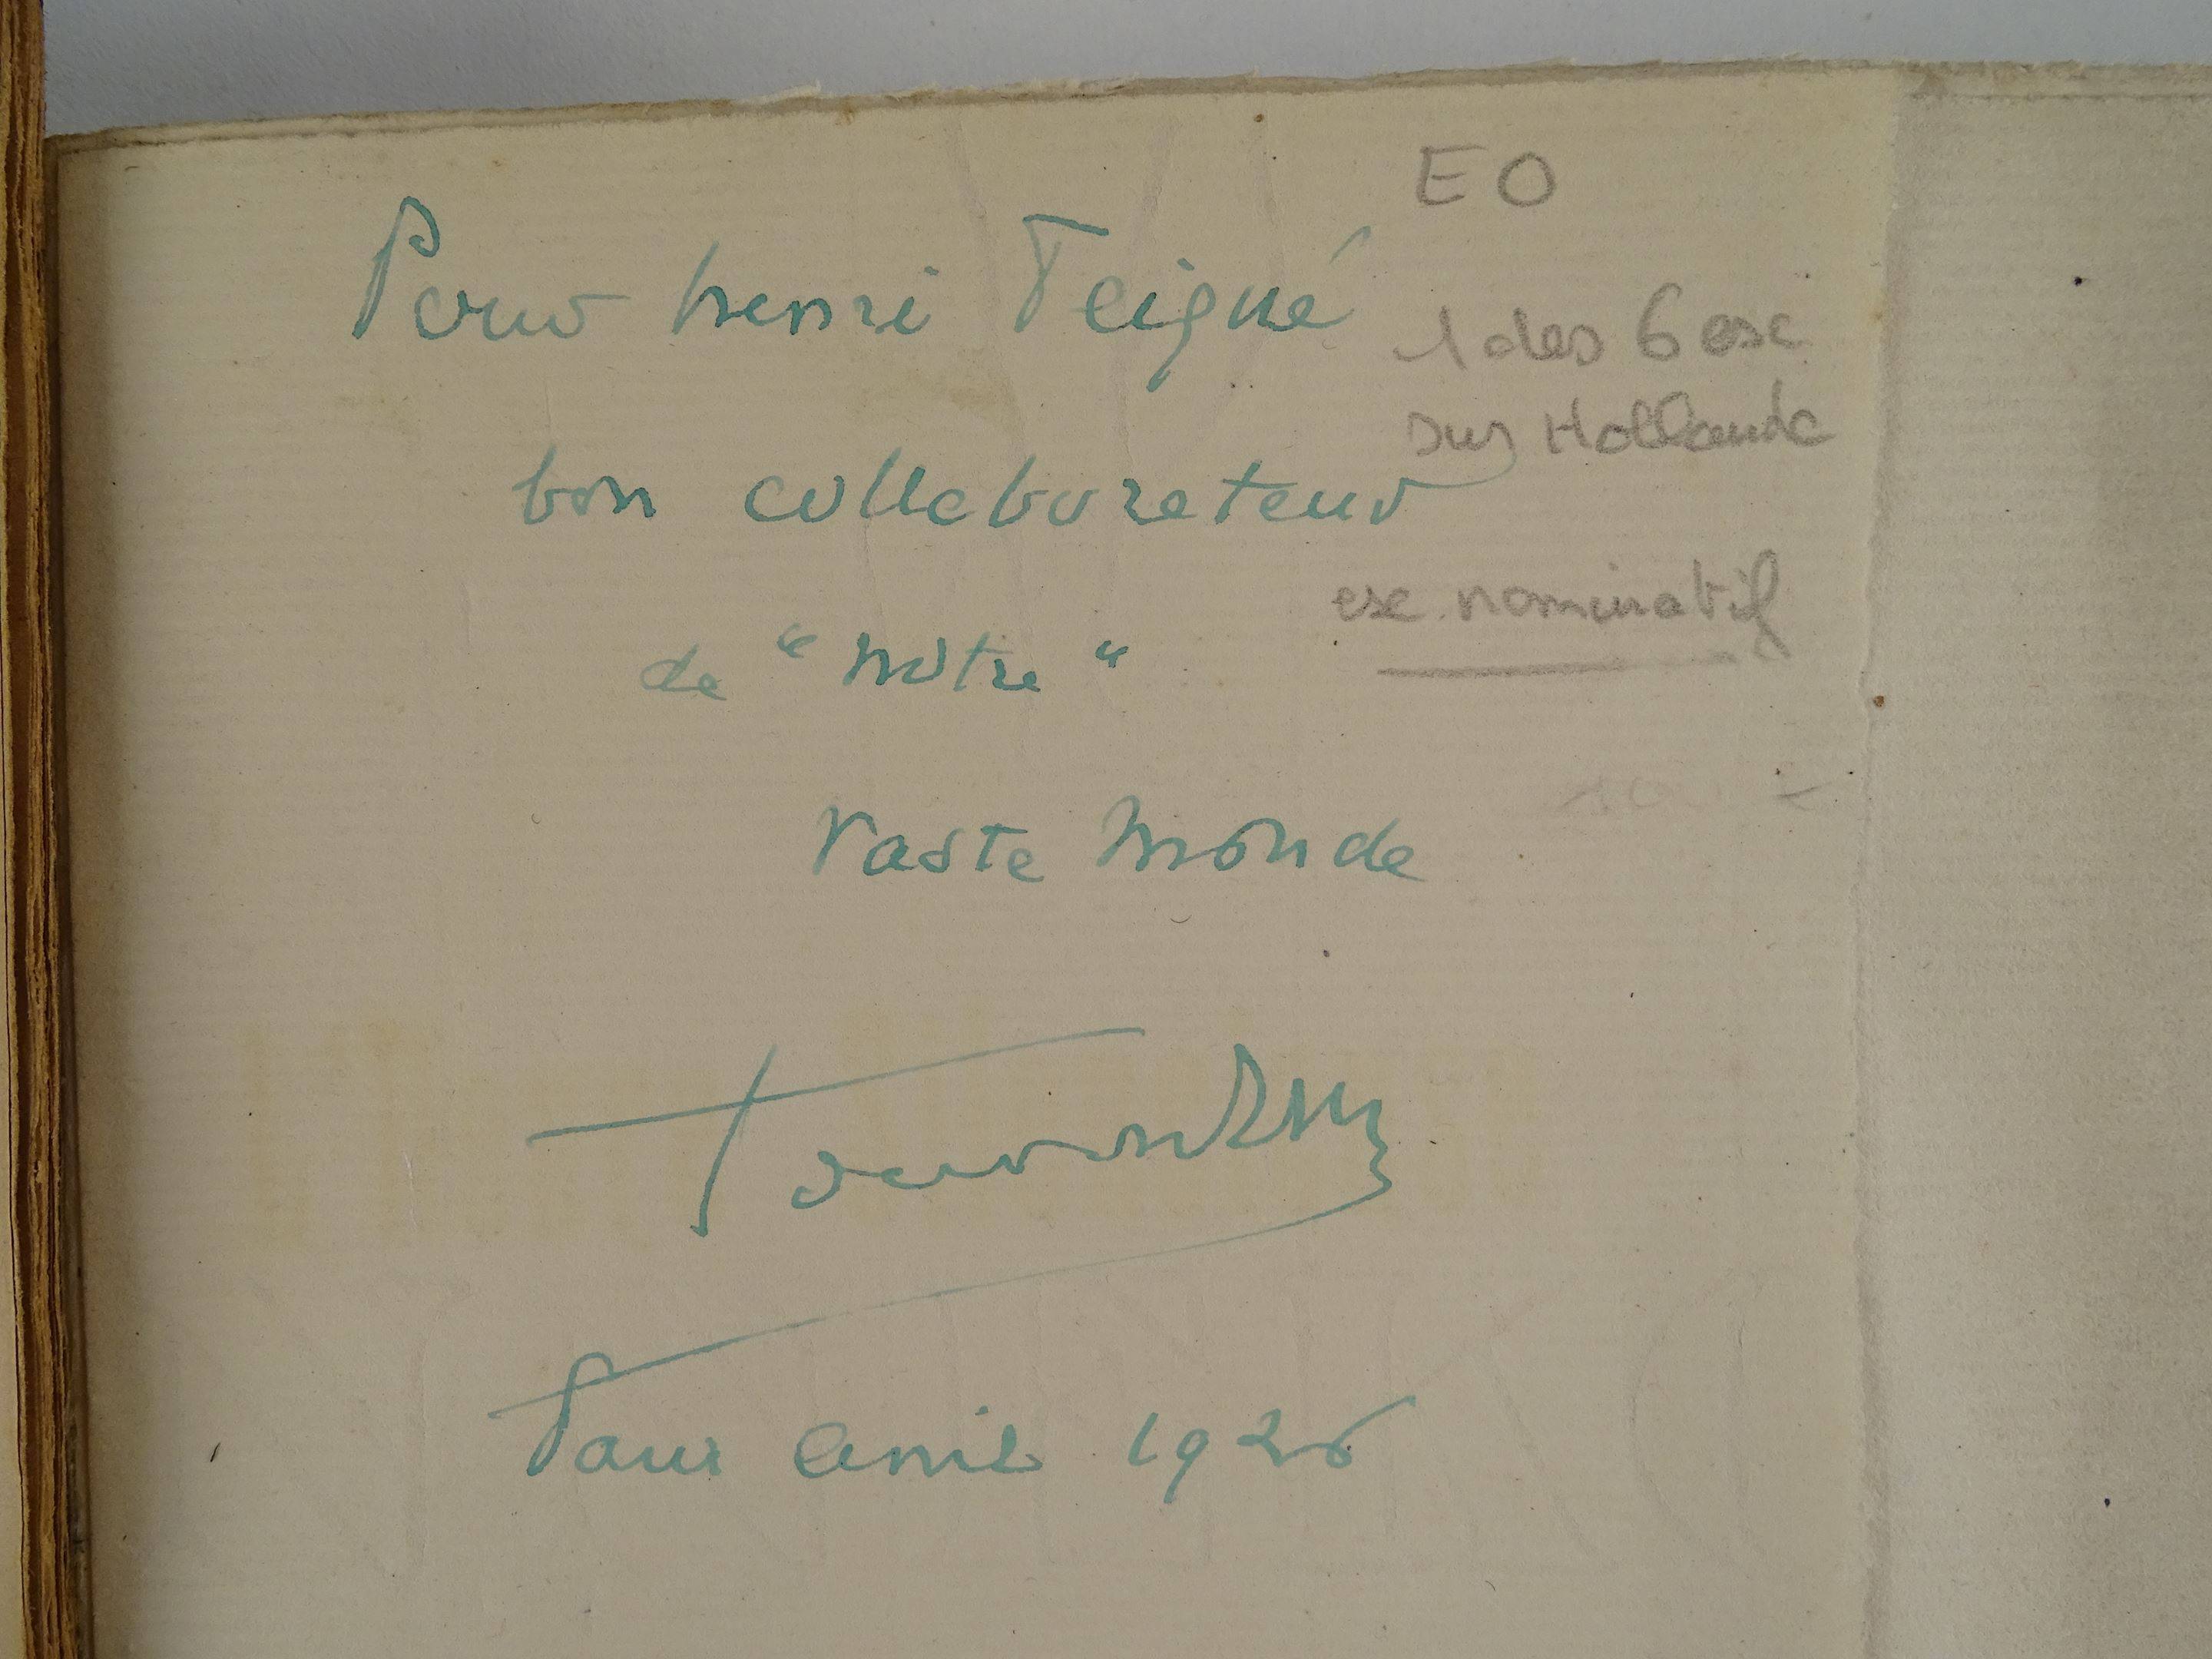 Pour henri Teigné
bon collaborateur
de “ notre “
Vaste Monde
Paris avril 1926
EO
1 des 6 ex
sur Hollande
ex. nominatif